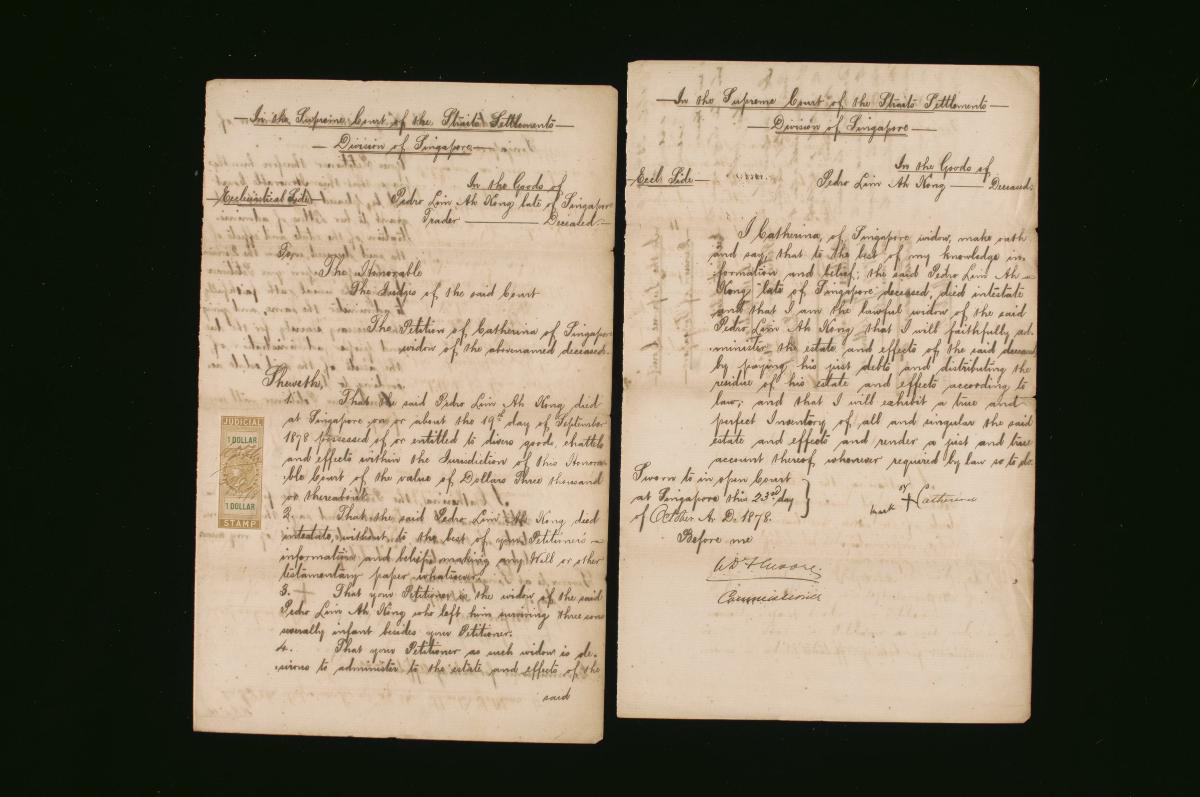 In the Supreme Court of the Straits Settlements
Division of Singapore
In the Goods of
Ecclesiastical Side
Pedro Lim Ah Kong late of Singapore
Trader Deceased.
To,
The Honorable
The Judges of the said Court
The Petition of Catherina of Singapore
widow of the abovenamed deceased.
Sheweth,
1. That the said Pedro Lim Ah Kong died
at Singapore on or about the 19th day of September
1878 possessed of or entitled to divers goods, chattels
and effects within the Jurisdiction of this Honora-
ble Court of the value of Dollars Three thousand
or thereabout.
2. That the said Pedro Lim Ah Kong died
intestate, without to the best of your Petitioner's
information and belief making any Will or other
testamentary paper whatsoever.
3. That your Petitioner is the widow of the said
Pedro Lim Ah Kong who left him surviving three sons
severally infant besides your Petitioner.
4. That your Petitioner as such widow is de-
sirous to administer to the estate and effects of the
said
JUDICIAL
1 DOLLAR
1 DOLLAR
STAMP
In the Supreme Court of the Straits Settlements
Division of Singapore
In the Goods of
Eccl. Side
Pedro Lim Ah Kong Deceased.
I Catherina, of Singapore widow, make oath
and say, that to the best of my knowledge in-
formation and belief, the said Pedro Lim Ah
Kong, late of Singapore deceased, died intestate
and that I am the lawful widow of the said
Pedro Lim Ah Kong that I will faithfully ad-
minister the estate and effects of the said deceased
by paying his just debts and distributing the
residue of his estate and effects according to
law, and that I will exhibit a true and
perfect Inventory of all and singular the said
estate and effects and render a just and true
account thereof whenever required by law so to do.
Sworn to in open Court
at Singapore this 23rd day
of October A. D. 1878.
of
mark + Catherina
Before me
Commissioner